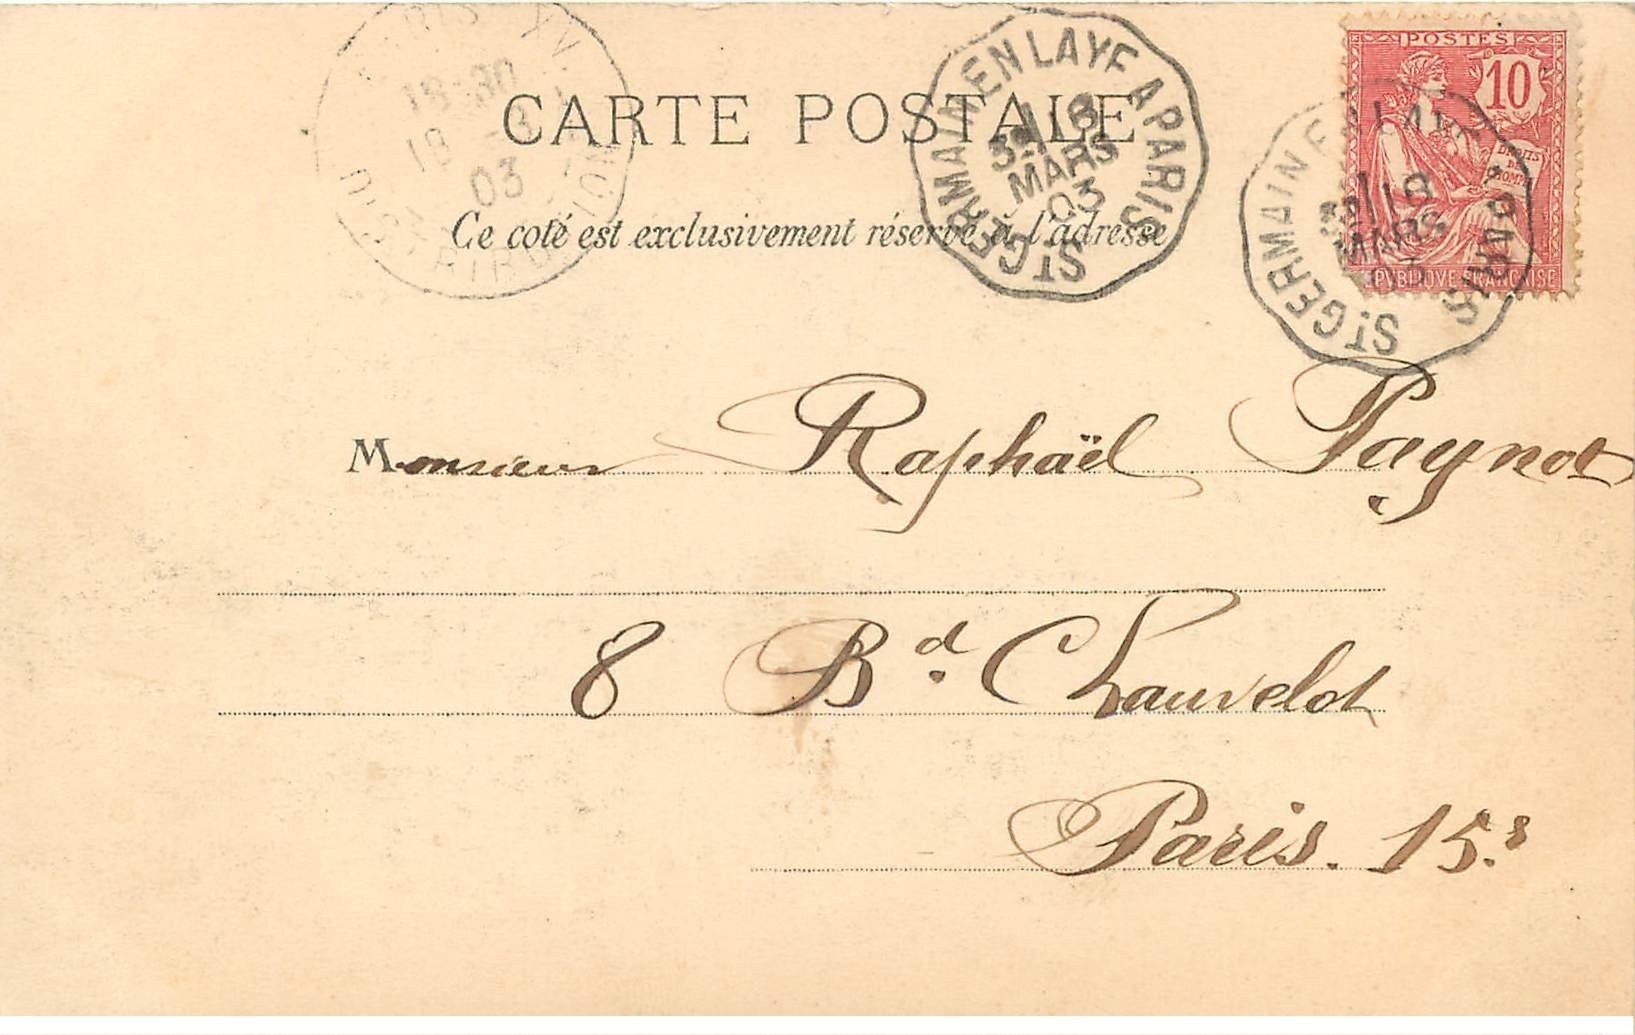 CARTE POSTALE
Ce coté est exclusivement réservé à l'adresse
POSTES
10
DROITS DE L'HOMME
FRANÇAISE
ST GERMAIN EN LAYE A PARIS
MARS
03
ST GERMAIN EN LAYE A PARIS
18
MARS
PARIS XV
18 30
18
03
DISTRIBUTION
Monsieur Raphaël Pagnot
8 Bd. Chauvelot
Paris. 15.e